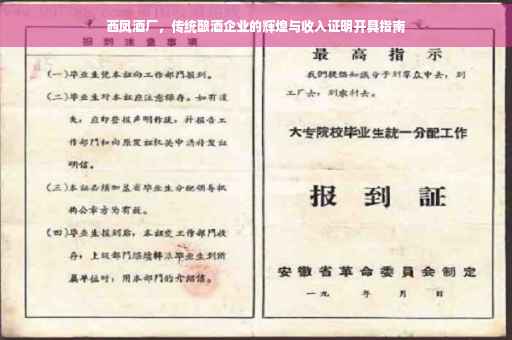 西凤酒厂，传统酿酒企业的辉煌与收入证明开具指南
报到注意事项
(一)毕业生凭本证向工作部门报到。
(二)毕业生对本证应注意保存。如有遗
失，应即登报声明作废，并报告工
作部门和向原发证机关申请补发证
明信。
(三)本证必须加盖省毕业生分配领导机
构公章方为有效。
(四)毕业生报到后，本证交工作部门收
存，上级部门
属单位时，用本部门的介绍信。
最高指示
我们提倡知识分子到群众中去，到
工厂去，到农村去。
大专院校毕业生统一分配工作
报到証
安徽省革命委員会制定
一九 年 月 日